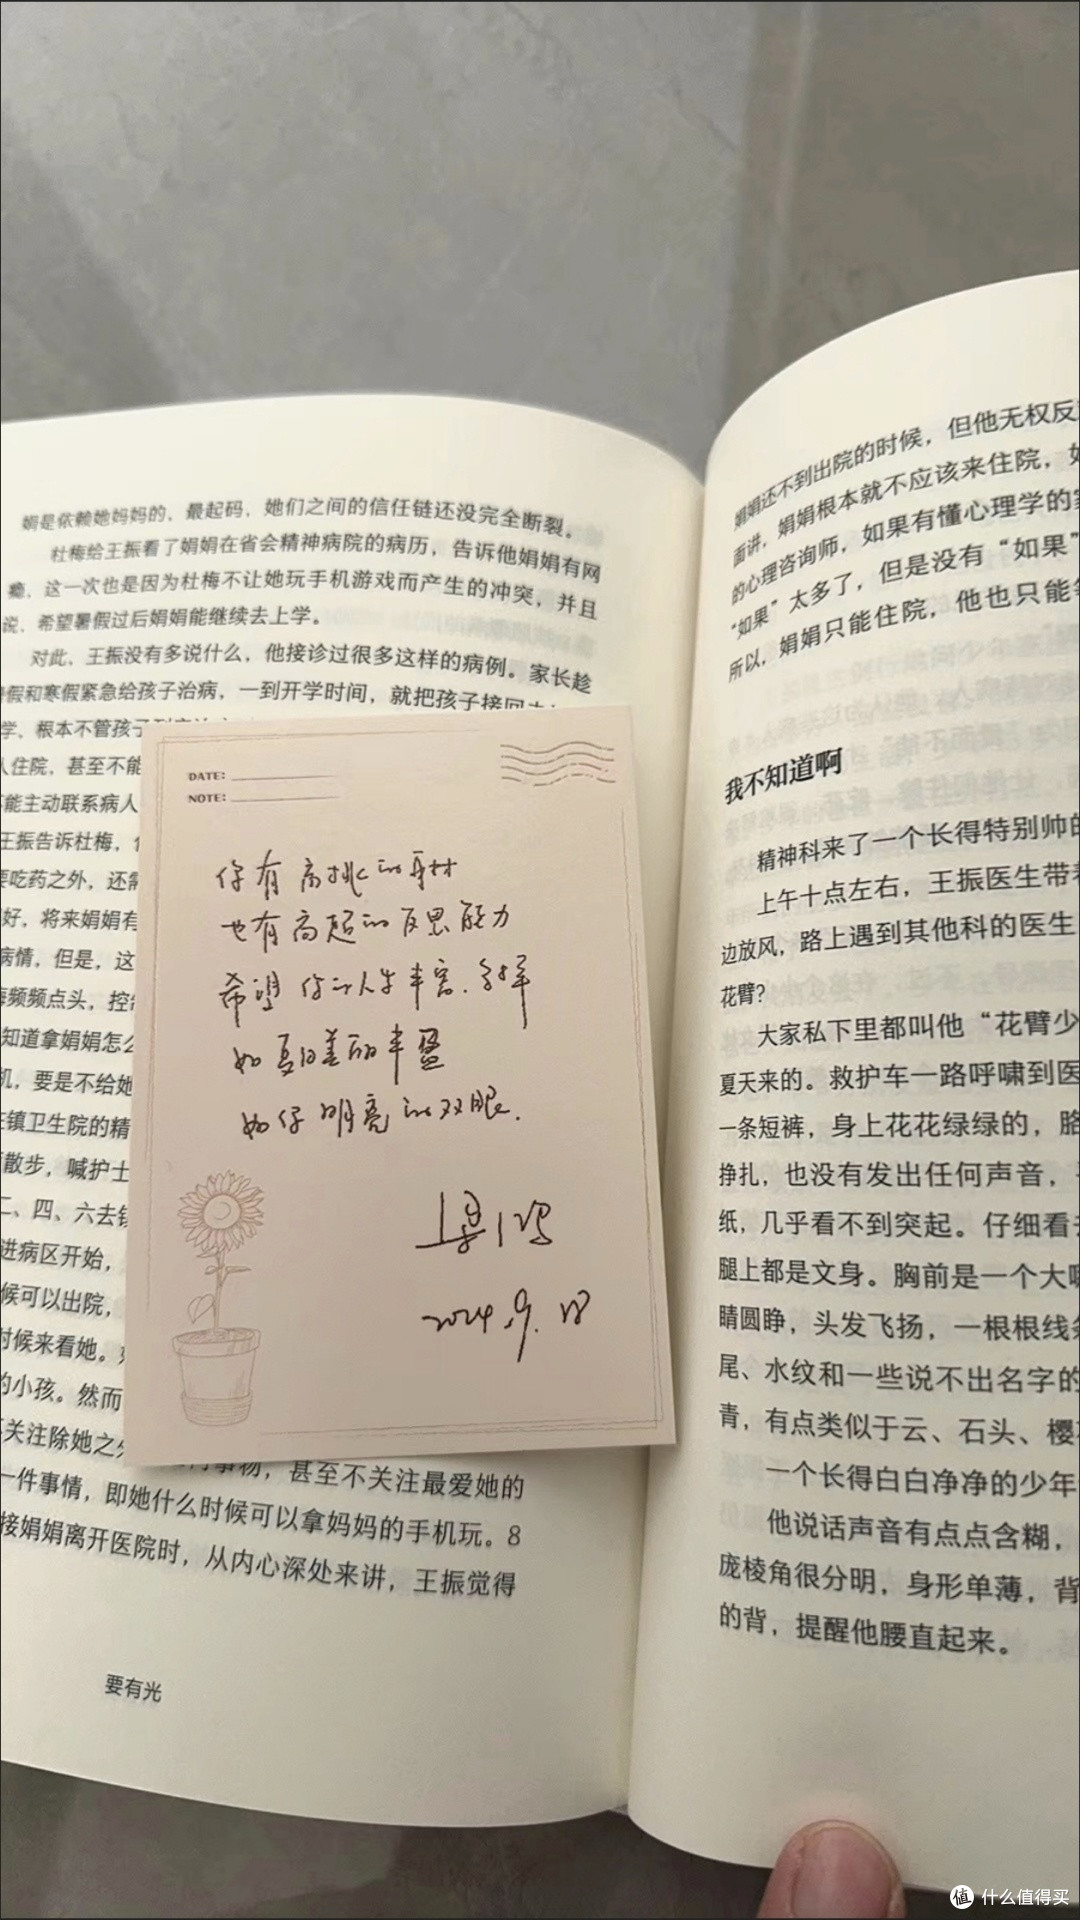 娟是依赖她妈妈的，最起码，她们之间的信任链还没完全断裂。
杜梅给王振看了娟娟在省会精神病院的病历，告诉他娟娟有网
瘾，这一次也是因为杜梅不让她玩手机游戏而产生的冲突，并且
说，希望暑假过后娟娟能继续去上学。
对此，王振没有多说什么，他接诊过很多这样的病例。家长趁
假和寒假紧急给孩子治病，一到开学时间，就把孩子接回
学，根本不管孩子
人住院，甚至不能
不能主动联系病人
王振告诉杜梅，
要吃药之外，还需
好，将来娟娟有
病情，但是，这
频频点头，控
知道拿娟娟怎么
机，要是不给她
在镇卫生院的精
散步，喊护士
二、四、六去镇
进病区开始，
候可以出院，
时候来看她。
的小孩。然而
不关注除她之
事物，甚至不关注最爱她的
一件事情，即她什么时候可以拿妈妈的手机玩。8
接娟娟离开医院时，从内心深处来讲，王振觉得
要有光
DATE:
NOTE:
你有高挑的身材
也有高超的反思能力
希望你的人生丰富、多样
如夏日美丽丰盈
如你明亮的双眼.
梁鸿
2024.9.18
娟娟还不到出院的时候，但他无权反
面讲，娟娟根本就不应该来住院，如
的心理咨询师，如果有懂心理学的家
“如果”太多了，但是没有“如果”
所以，娟娟只能住院，他也只能
我不知道啊
精神科来了一个长得特别帅的
上午十点左右，王振医生带着
边放风，路上遇到其他科的医生
花臂？
大家私下里都叫他“花臂少
夏天来的。救护车一路呼啸到医
一条短裤，身上花花绿绿的，胳
挣扎，也没有发出任何声音，
纸，几乎看不到突起。仔细看去
腿上都是文身。胸前是一个大
睛圆睁，头发飞扬，一根根线条
尾、水纹和一些说不出名字的
青，有点类似于云、石头、樱花
一个长得白白净净的少年
他说话声音有点点含糊，
庞棱角很分明，身形单薄，背
的背，提醒他腰直起来。
值 什么值得买